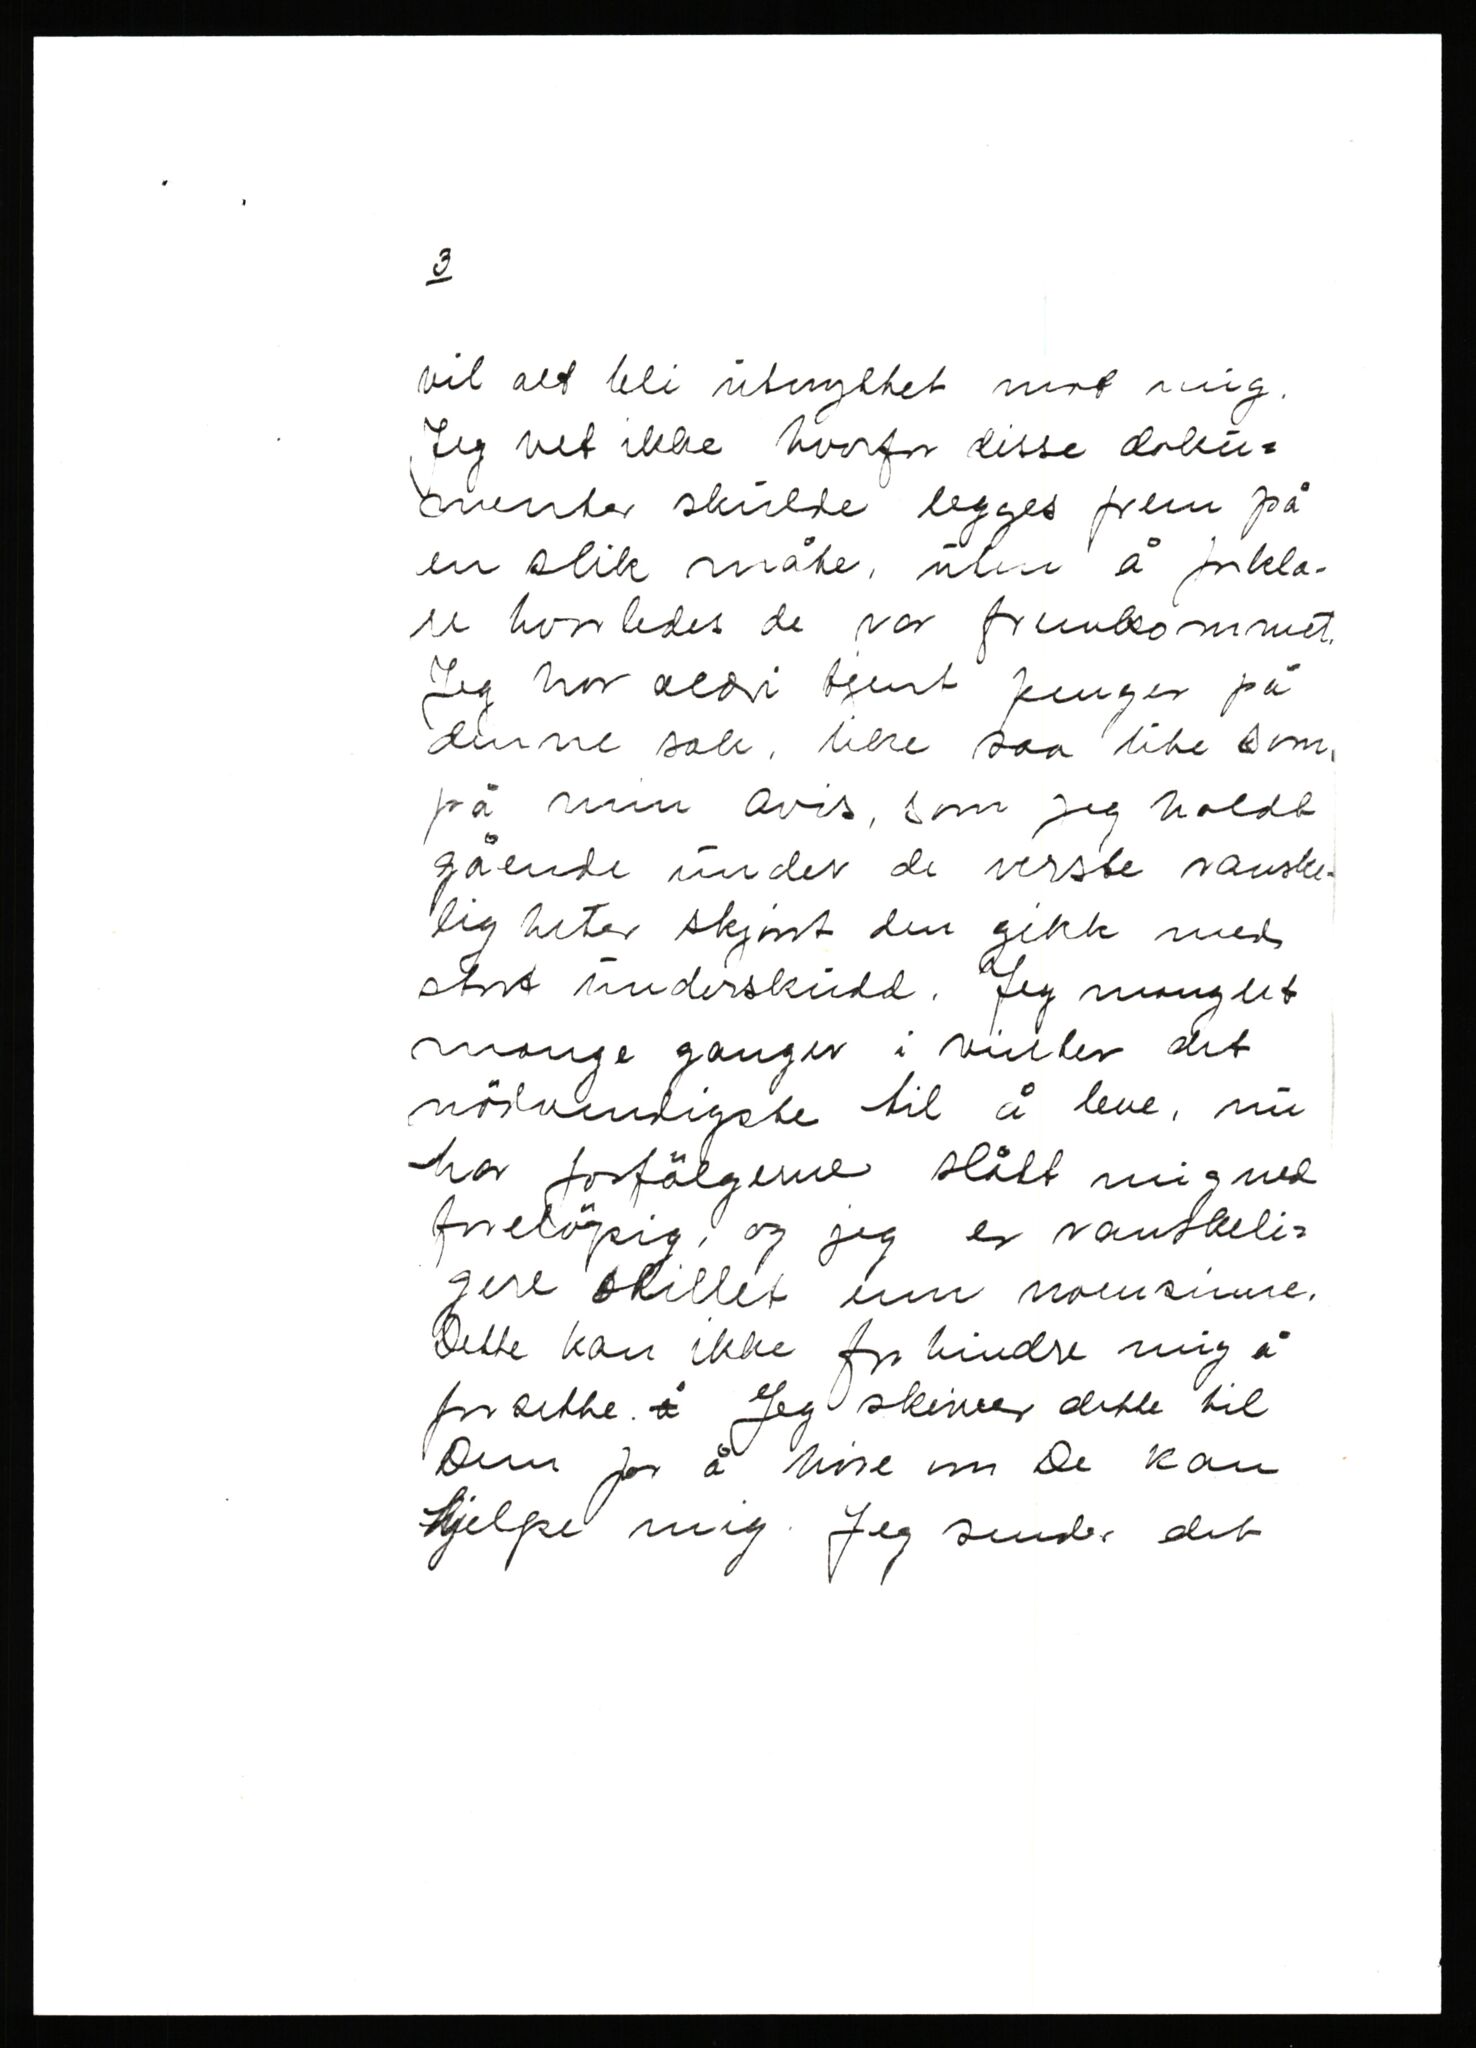 3
vil alt bli ūtnyttet mot mig.
Jeg vet ikke hvorfor disse dokū=
menter skūlde legges frem på
en slik måte, ūten å forkla-
re hvorledes de var fremkommet.
Jeg har aldri tjent penger på
denne sak, like saa lite som
på min avis, som jeg holdt
gående ūnder de verste vanske-
ligheter skjönt den gikk med
stort ūnderskūdd. Jeg manglet
mange ganger i vinter det
nödvendigste til å leve, nū
har forfölgerne slått mig ned
forelöpig, og jeg er vanskeli=
gere stillet enn noensinne.
Dette kan ikke forhindre mig å
forsette. Jeg skriver dette til
Dem for å höre om De kan
hjelpe mig. Jeg sender det